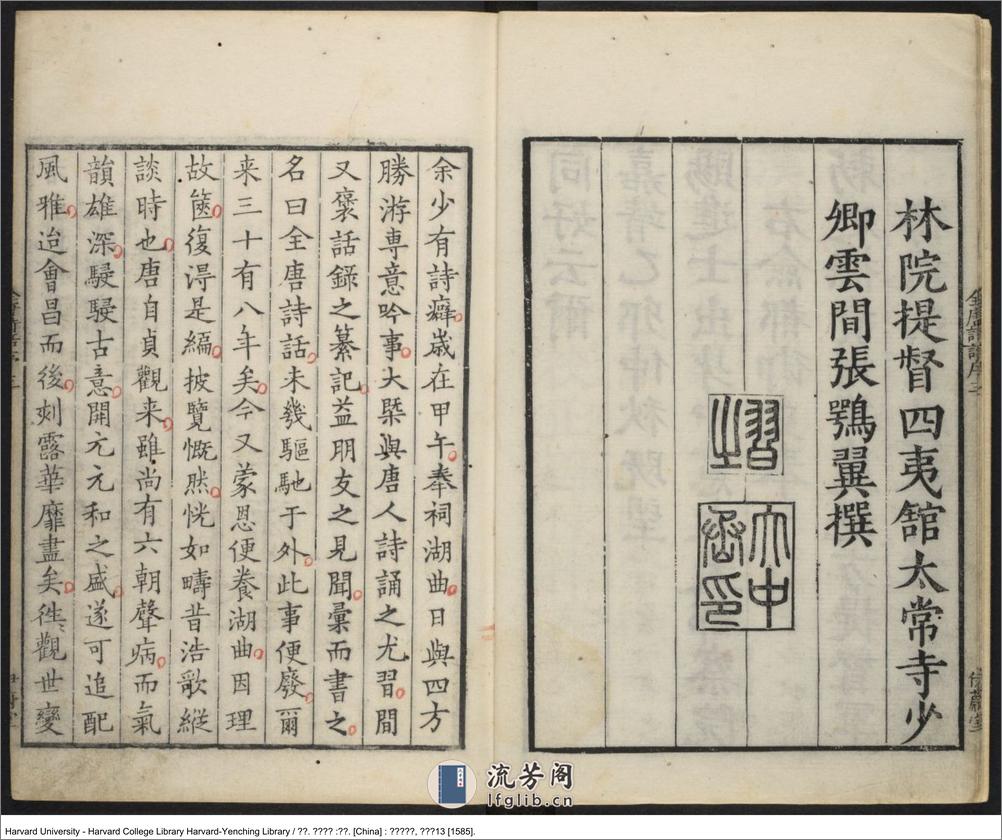 林院提督四夷舘太常寺少
卿雲間張鶚翼撰
余少有詩癖歲在甲午奉祠湖曲日與四方
勝游専意吟事大槩與唐人詩誦之尤習閒
又褒話錄之纂記益朋友之見聞彙而書之
名曰全唐詩話未幾驅馳于外此事便廢爾
来三十有八年矣今又蒙恩便養湖曲因理
故篋復淂是編披覽慨然恍如疇昔浩歌縱
談時也唐自貞觀来雖尚有六朝聲病而氣
韻雄深駸駸古意開元元和之盛遂可追配
風雅迨會昌而後刻露華靡盡矣徃觀世變
流芳阁
lfglib.cn
Harvard University - Harvard College Library Harvard-Yenching Library / ??. ???? :??. [China] : ?????, ???13 [1585].